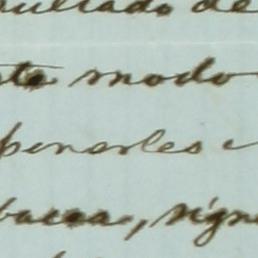 sultado de
ste modo
penarles
bacea, sign